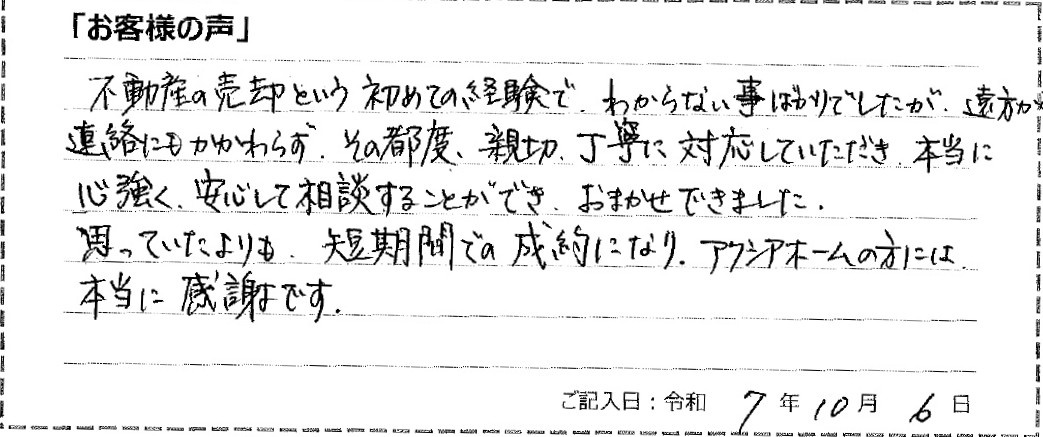 「お客様の声」
不動産の売却という初めての経験で、わからない事ばかりでしたが、遠方から
連絡にもかかわらず、その都度、親切、丁寧に対応していただき、本当に
心強く、安心して相談することができ、おまかせできました。
思っていたよりも、短期間での成約になり、アクシアホームの方には、
本当に感謝です。
ご記入日：令和 7年10月 6日